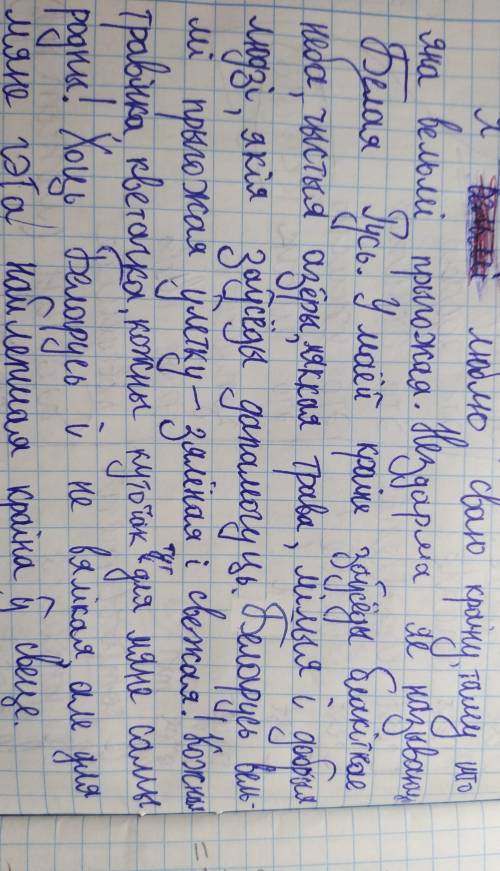 Я люблю сваю краіну, таму што
яна вельмі прыгожая. Нездорма яе называюць
Белая Русь. У маей краіне заўсёды блакітнае
неба, чыстыя азёры, мяккая трава, мілыя і добрыя
людзі, якія заўсёды дапамогуць. Беларусь вель-
мі прыгожая улетку - зялёная і свежая. Кожны
травінка, кветачка, кожны куточак тут для мяне самы
родны! Хоць Беларусь і не вялікая, але для
мяне гэта найлепшая краіна ў свеце.